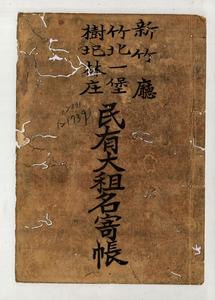 新竹廳
竹北一堡
樹圯林庄
民有大租名寄帳